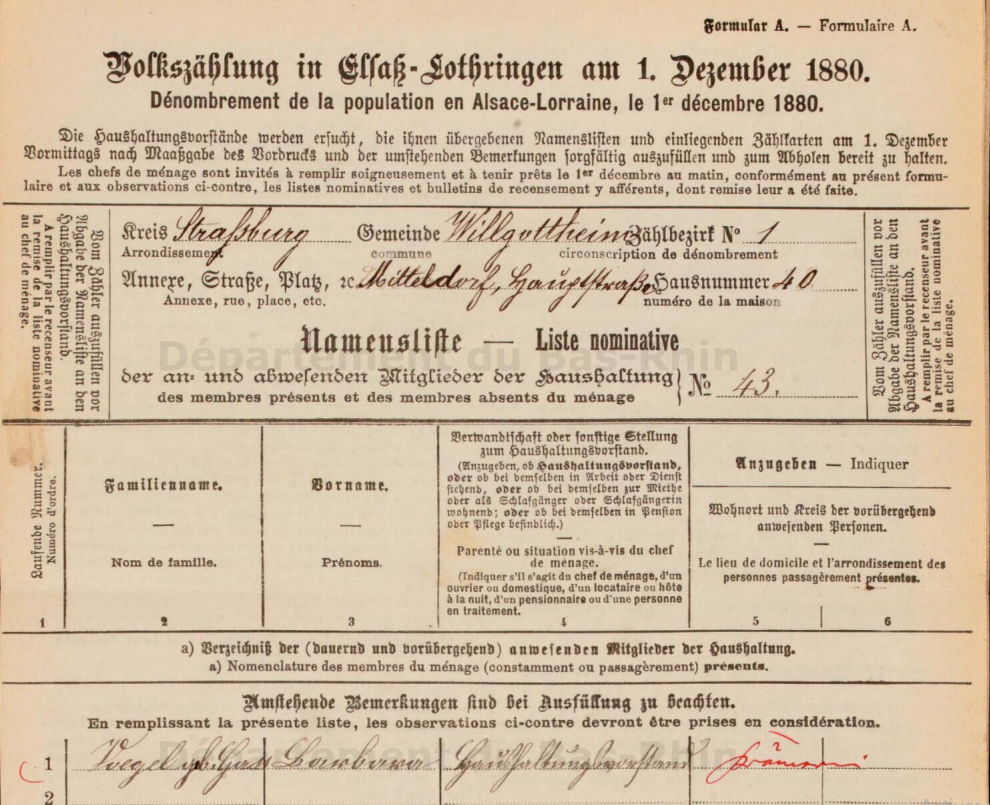 Formular A. — Formulaire A.
Volkszählung in Elsaß-Lothringen am 1. Dezember 1880.
Dénombrement de la population en Alsace-Lorraine, le 1er décembre 1880.
Die Haushaltungsvorstände werden ersucht, die ihnen übergebenen Namenslisten und einliegenden Zählkarten am 1. Dezember
Vormittags nach Maaßgabe des Vordrucks und der umstehenden Bemerkungen sorgfältig auszufüllen und zum Abholen bereit zu halten.
Les chefs de ménage sont invités à remplir soigneusement et à tenir prêts le 1er décembre au matin, conformément au présent formu-
laire et aux observations ci-contre, les listes nominatives et bulletins de recensement y afférents, dont remise leur a été faite.
Vom Zähler auszufüllen vor
Abgabe der Namensliste an den
Haushaltungsvorstand.
A remplir par le recenseur avant
la remise de la liste nominative
au chef de ménage.
Kreis Straßburg Gemeinde Willgottheim Zählbezirk No 1
Arrondissement commune circonscription de dénombrement
Annexe, Straße, Platz, ꝛc. Mitteldorf, Hauptstraße Hausnummer 40
Annexe, rue, place, etc. numéro de la maison
Namensliste — Liste nominative
Département du Bas-Rhin
der an- und abwesenden Mitglieder der Haushaltung
des membres présents et des membres absents du ménage
No 43.
Vom Zähler auszufüllen vor
Abgabe der Namensliste an den
Haushaltungsvorstand.
A remplir par le recenseur avant
la remise de la liste nominative
au chef de ménage.
Laufende Nummer.
Numéro d'ordre.
1
Familienname.
—
Nom de famille.
2
Vorname.
—
Prénoms.
3
Verwandtschaft oder sonstige Stellung
zum Haushaltungsvorstand.
(Anzugeben, ob Haushaltungsvorstand,
oder ob bei demselben in Arbeit oder Dienst
stehend, oder ob bei demselben zur Miethe
oder als Schlafgänger oder Schlafgängerin
wohnend; oder ob bei demselben in Pension
oder Pflege befindlich.)
—
Parenté ou situation vis-à-vis du chef
de ménage.
(Indiquer s'il s'agit du chef de ménage, d'un
ouvrier ou domestique, d'un locataire ou hôte
à la nuit, d'un pensionnaire ou d'une personne
en traitement.
4
Anzugeben — Indiquer
Wohnort und Kreis der vorübergehend
anwesenden Personen.
—
Le lieu de domicile et l'arrondissement des
personnes passagèrement présentes.
5 6
a) Verzeichniß der (dauernd und vorübergehend) anwesenden Mitglieder der Haushaltung.
a) Nomenclature des membres du ménage (constamment ou passagèrement) présents.
Umstehende Bemerkungen sind bei Ausfüllung zu beachten.
En remplissant la présente liste, les observations ci-contre devront être prises en considération.
Département du Bas-Rhin
1 Voegel gb. Barbara Haushaltungsvorstand
2